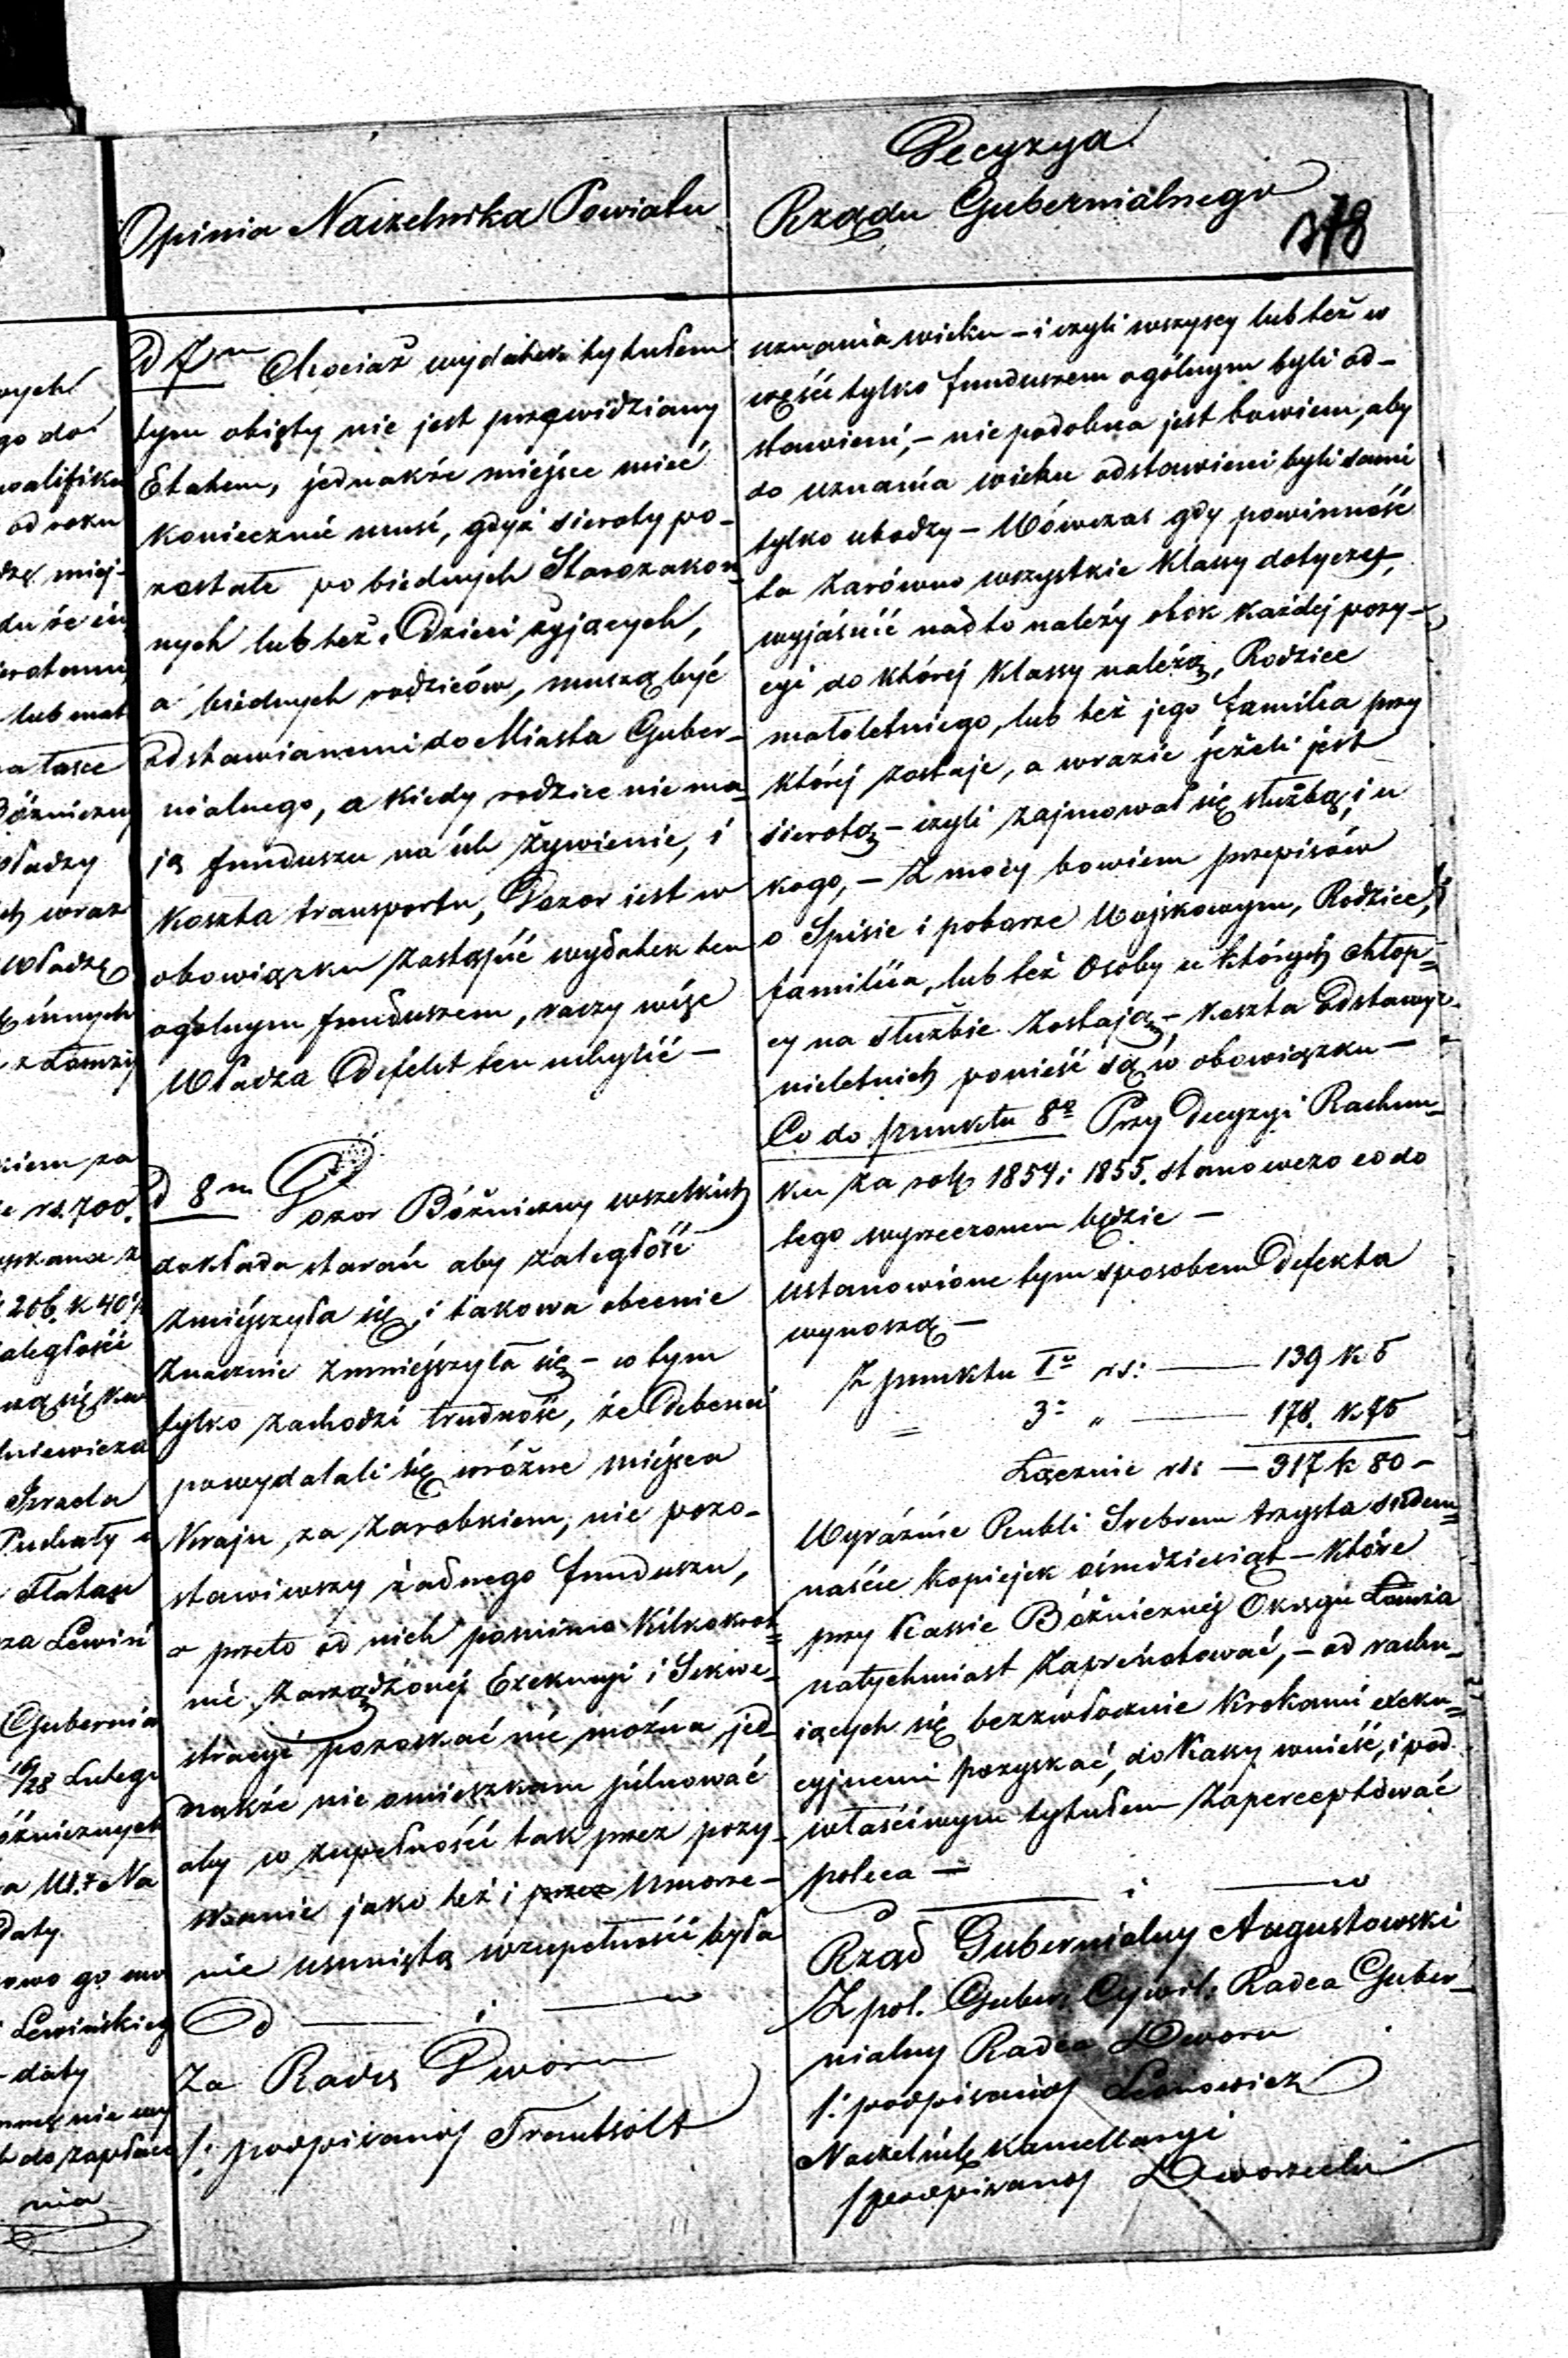 Opinia Naczelnika Powiatu
d 7m Chociaż wydatek tytułem
tym obięty nie jest przewidziany
Etatem, jednakże miéjsce mieć
koniecznie musi, gdyż sieroty po-
zostałe po biédnych Starozakon-
nych lub też Dzieci żyjących,
a biédnych rodziców, muszą być
odstawianemi do Miasta Guber-
nialnego, a kiedy rodzice nie ma-
ją funduszu na ich żywienie, i
koszta transportu, Dozor iest w
obowiązku zastąpić wydatek ten
ogólnym funduszem, raczy więc
Władza Defekt ten uchylić —
d 8m Dozor Bóżniczny wszelkich
dokłada starań aby zaległość
zmniéjszyła się, i takowa obecnie
znacznie zmniejszyła się - w tym
tylko zachodzi trudność, że Debenci
powydalali się w różne miéjsca
Kraju, za zarobkiem, nie pozo-
stawiwszy żadnego funduszu,
a przeto od nich pomimo kilkokrot=
nie zarządzonéj Exekucyi i Sekwe-
stracyi pozyskać nie można, jed-
nakże nie omieszkam pilnować
aby w zupełności tak przez pozy-
skanie jako też i przez Umorze-
nie usuniętą w zupełności była
Za Radcę Dworu
/: podpisano/ Trembsolt
Decyzya
Rządu Gubernialnego
378
uznania wieku - i czyli wszyscy lub też w
części tylko funduszem ogólnym byli od-
stawieni, - nie podobna jest bowiem, aby
do uznania wieku odstawieni byli sami
tylko ubodzy - Wówczas gdy powinność
ta zarówno wszystkie Klassy dotyczy,
wyjaśnić nadto należy obok każdéj pozy-
cyi do któréj Klassy należą, Rodzice
małoletniego, lub też jego familia przy
któréj zostaje, a w razie jeżeli jest
sierotą - czyli zajmował się służbą, i u
kogo, - Z mocy bowiem przepisów
o Spisie i poborze Wojskowym, Rodzice,
familia, lub też Osoby u których chłop=
cy na służbie zostają - koszta odstawy
nieletnich ponieść są w obowiązku —
Co do punktu 8o Przy Decyzyi Rachun-
ku za rok 1854 i 1855. stanowczo co do
tego wyrzeczonem będzie —
ustanowione tym sposobem Defekta
wynoszą —
Z punktu Io rs: — 139 k 5
= 3o „ — 178. k 75
Łącznie rs: — 317 k 80 -
Wyraźnie Rubli Srebrem trzysta siedem=
naście kopiejek ośmdziesiąt - które
przy Kassie Bóżnicznéj Okręgu Łomża
natychmiast zaprénotować, - od rachu-
iących się bezzwłocznie krokami exeku=
cyjnemi pozyskać, do Kassy wnieść, i pod
właściwym tytułem zaperceptować
poleca —
Rząd Gubernialny Augustowski
Z pol. Guber. Cywil. Radca Guber-
nialny Radca Dworu
/: podpisano/ Leonowicz
Naczelnik Kancellaryi
/podpisano/ Dworzecki